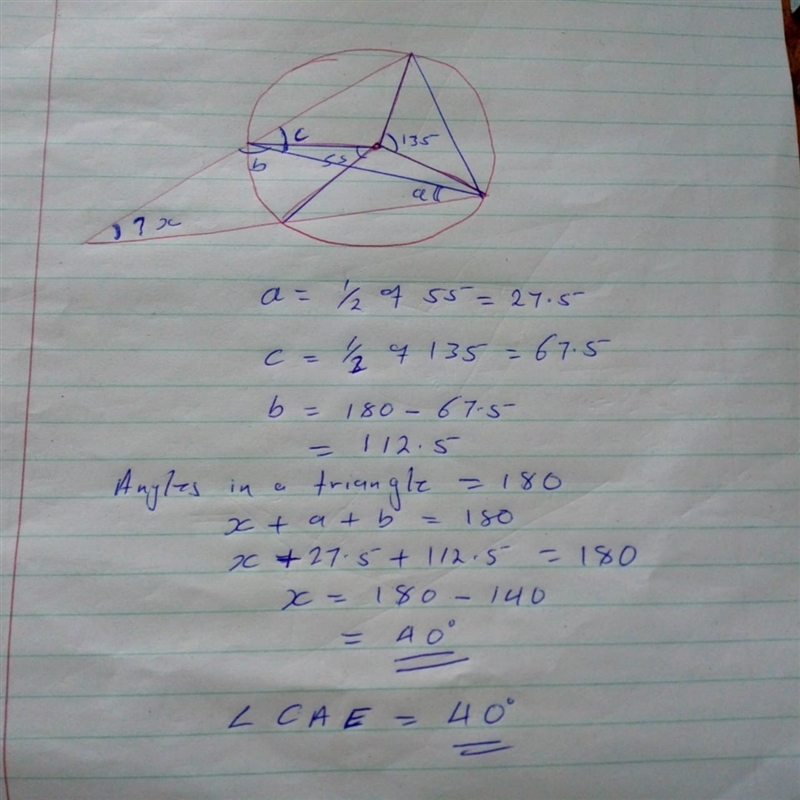 c
135
55
b
a
? x
a = 1/2 of 55 = 27.5
c = 1/2 of 135 = 67.5
b = 180 - 67.5
= 112.5
Angles in a triangle = 180
x + a + b = 180
x + 27.5 + 112.5 = 180
x = 180 - 140
= 40°
∠ CAE = 40°